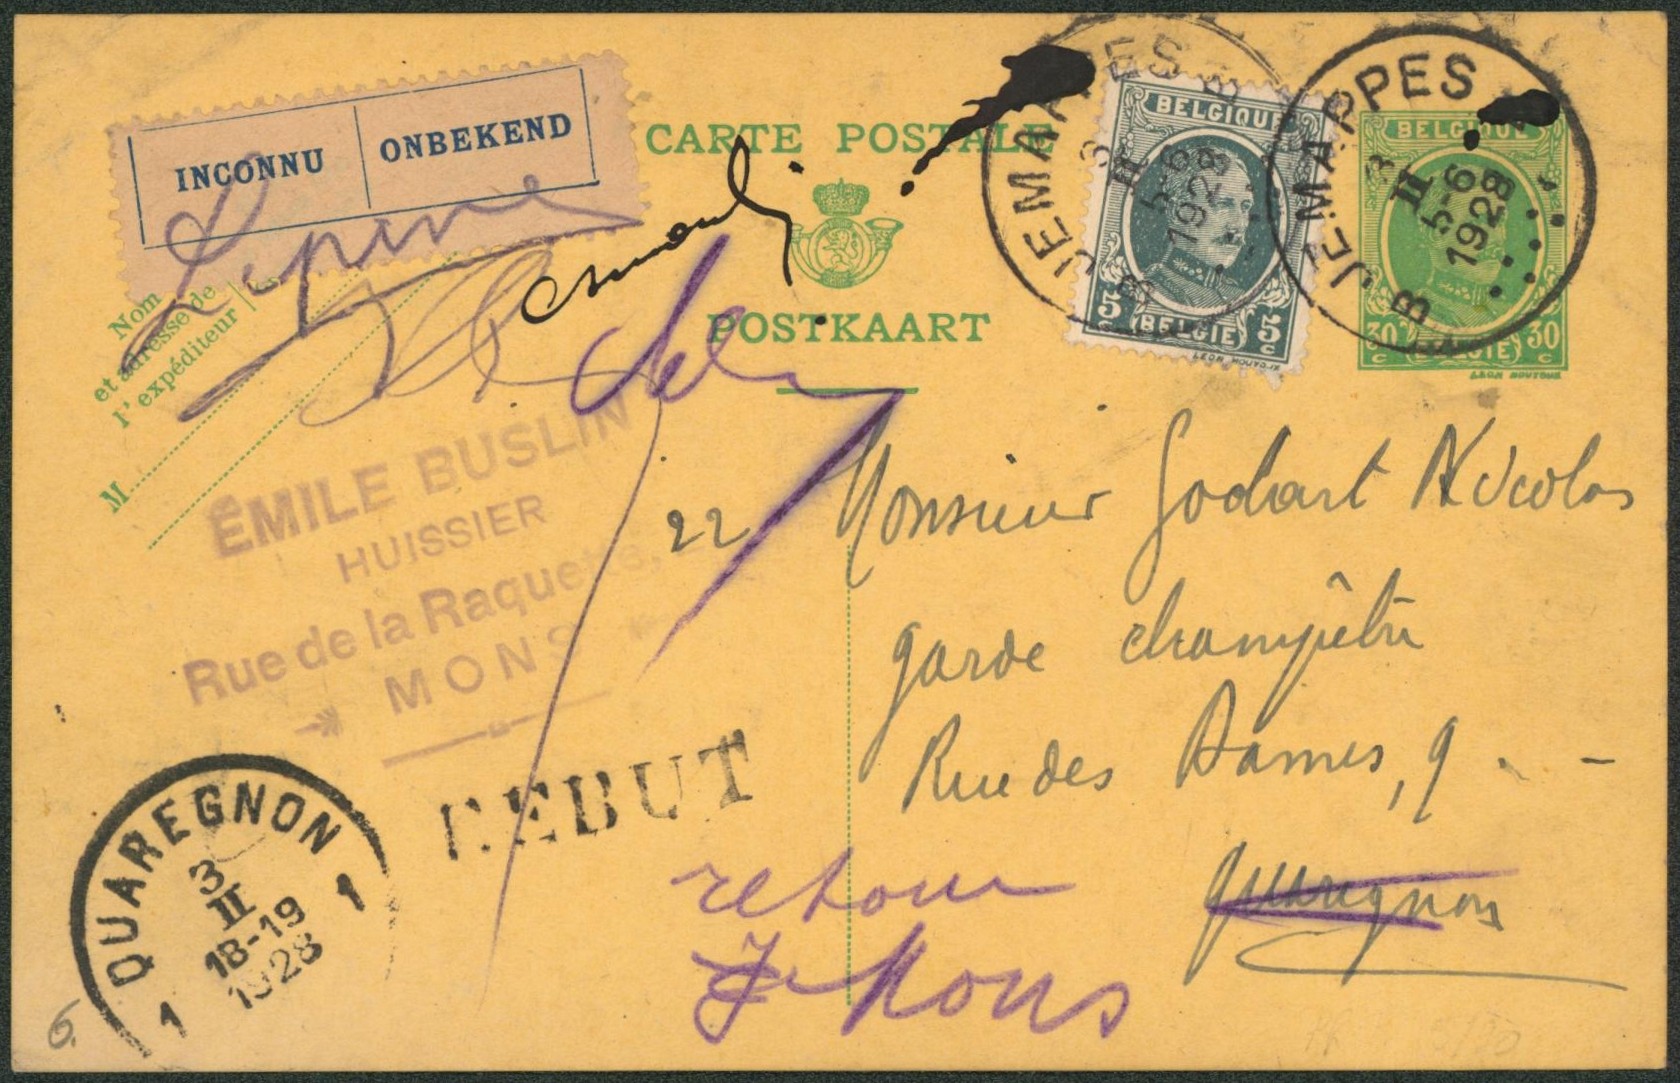 INCONNU ONBEKEND
CARTE POSTALE
POSTKAART
Nom
et adresse de
l'expéditeur
M
ÉMILE BUSLIN
HUISSIER
Rue de la Raquette,
MONS
BELGIQUE
5 c BELGIË 5 c
JEMAPPES
B
3
II
5-6
1928
BELGIQUE
30 c BELGIË 30 c
JEMAPPES
B
3
II
5-6
1928
22 Monsieur Godart Nicolas
garde champêtre
Rue des Dames, 9
Quaregnon
REBUT
retour
Mons
QUAREGNON
3
II
18-19
1928
1 1
6.